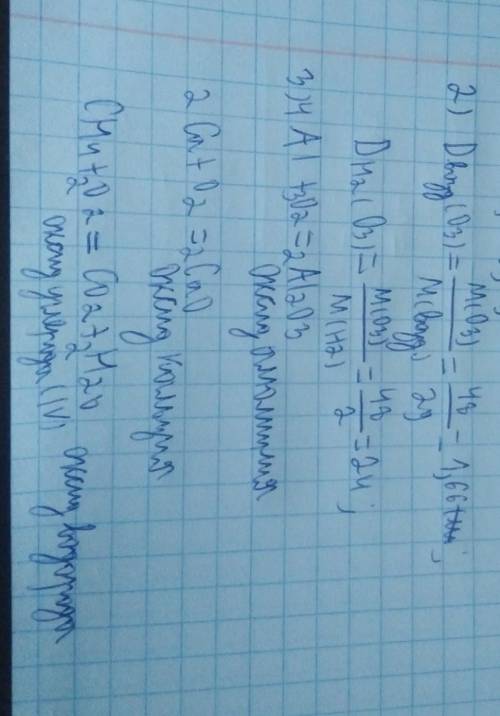 2) Dвозд(O3) = M(O3) / M(возд) = 48 / 29 = 1,66;
DH2(O3) = M(O3) / M(H2) = 48 / 2 = 24;
3) 4Al + 3O2 = 2Al2O3
оксид алюминия
2Ca + O2 = 2CaO
оксид кальция
CH4 + 2O2 = CO2 + 2H2O
оксид углерода (IV) оксид водорода